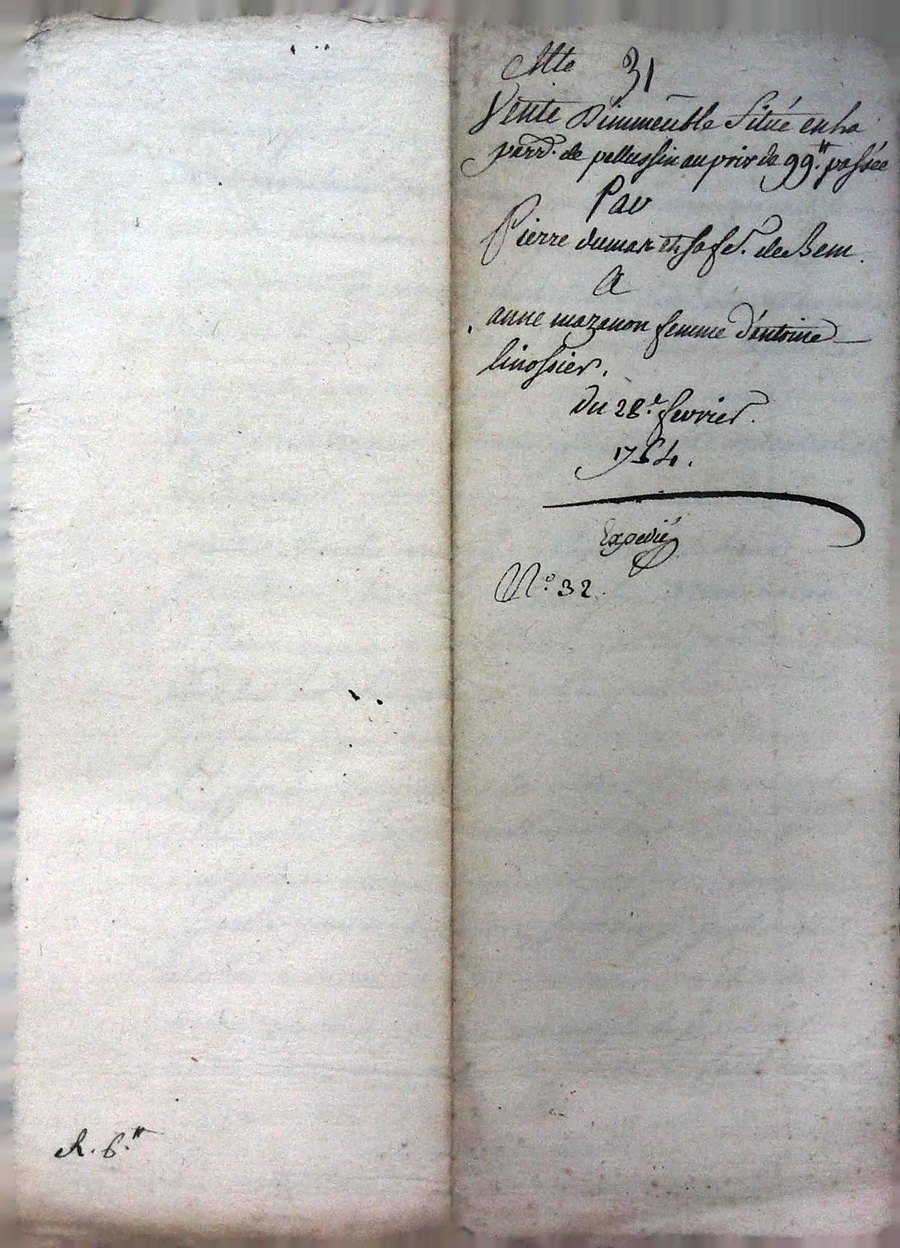 Vente D'immeuble Situé en la
parr. de pellussin au prix de 99.# passée
Par
Pierre dumas et sa fe. de Bem.
A
anne mazenon femme d'antoine
linossier.
du 28.e fevrier.
1754.
Expedié
N.o 32.
31
R. 6.#